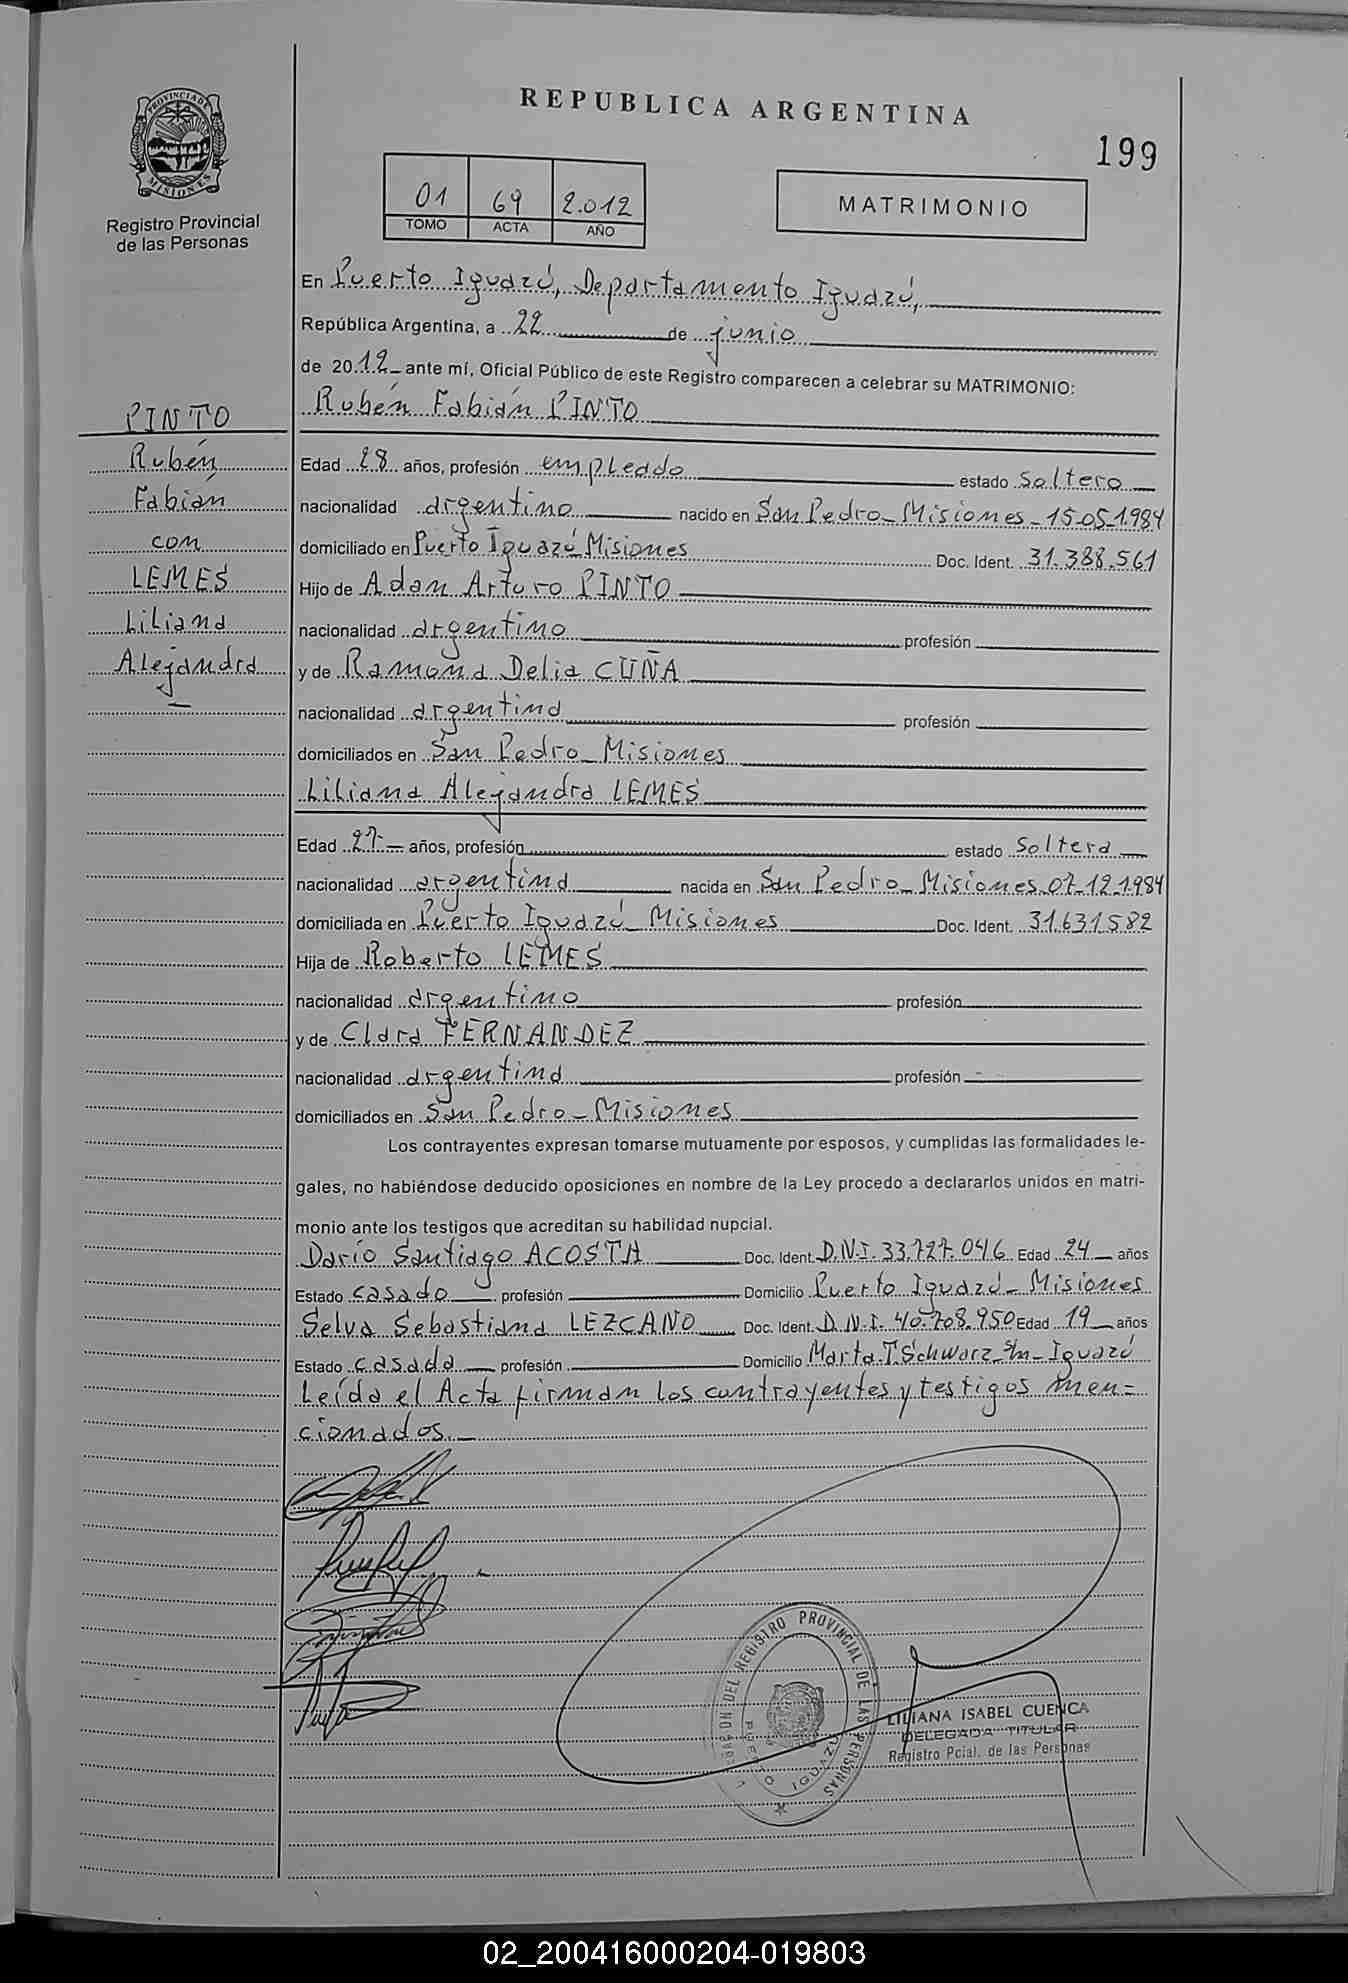 REPUBLICA ARGENTINA
199
PROVINCIA DE MISIONES
Registro Provincial
de las Personas
01 69 2.012
TOMO ACTA AÑO
MATRIMONIO
En Puerto Iguazú, Departamento Iguazú,
República Argentina, a 22 de junio
de 2012 ante mí, Oficial Público de este Registro comparecen a celebrar su MATRIMONIO:
Rubén Fabián PINTO
PINTO
Rubén
Fabián
con
LEMES
Liliana
Alejandra
Edad 28 años, profesión empleado estado soltero
nacionalidad argentino nacido en San Pedro - Misiones - 15-05-1984
domiciliado en Puerto Iguazú - Misiones Doc. Ident. 31.388.561
Hijo de Adan Arturo PINTO
nacionalidad argentino profesión
y de Ramona Delia CUÑA
nacionalidad argentina profesión
domiciliados en San Pedro - Misiones
Liliana Alejandra LEMES
Edad 27 años, profesión estado soltera
nacionalidad argentina nacida en San Pedro - Misiones 07-12-1984
domiciliada en Puerto Iguazú - Misiones Doc. Ident. 31.631.582
Hija de Roberto LEMES
nacionalidad argentino profesión
y de Clara FERNANDEZ
nacionalidad argentina profesión
domiciliados en San Pedro - Misiones
Los contrayentes expresan tomarse mutuamente por esposos, y cumplidas las formalidades le-
gales, no habiéndose deducido oposiciones en nombre de la Ley procedo a declararlos unidos en matri-
monio ante los testigos que acreditan su habilidad nupcial.
Darío Santiago ACOSTA Doc. Ident. D.N.I. 33.727.046 Edad 24 años
Estado casado profesión Domicilio Puerto Iguazú - Misiones
Selva Sebastiana LEZCANO Doc. Ident. D.N.I. 40.708.950 Edad 19 años
Estado casada profesión Domicilio Marta T. Schwarz s/n - Iguazú
Leída el Acta firman los contrayentes y testigos men=
cionados.
DEL REGISTRO PROVINCIAL DE LAS PERSONAS
PUERTO IGUAZU
LILIANA ISABEL CUENCA
DELEGADA TITULAR
Registro Pcial. de las Personas
02_200416000204-019803